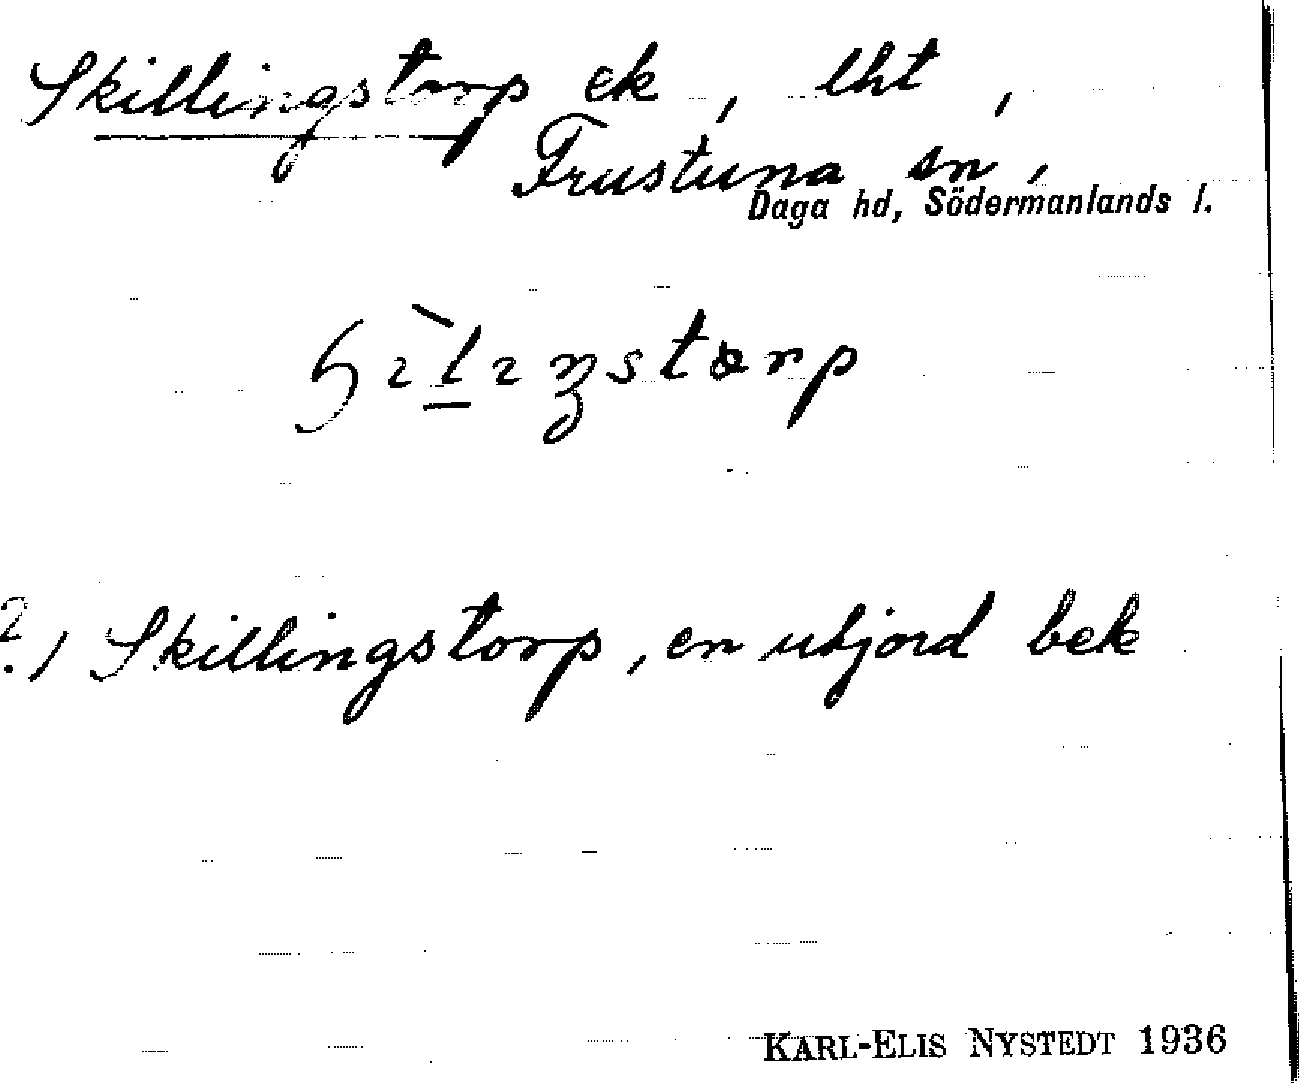 Skillingstorp ek, lht,
Frustuna sn,
Daga hd, Södermanlands l.
2./ Skillingstorp, en utjord bek
KARL-ELIS NYSTEDT 1936